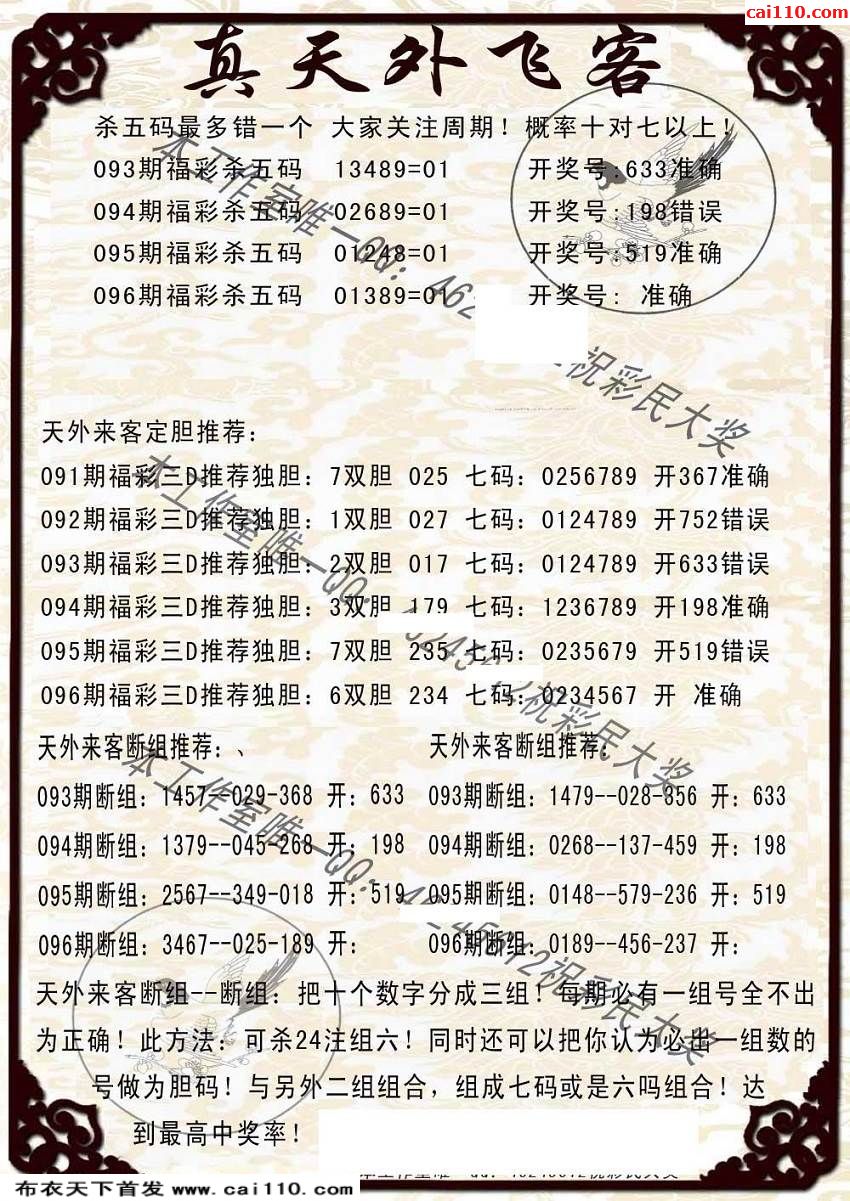 cai110.com
真天外飞客
杀五码最多错一个 大家关注周期！概率十对七以上！
093期福彩杀五码 13489=01 开奖号:633准确
094期福彩杀五码 02689=01 开奖号:198错误
095期福彩杀五码 01248=01 开奖号:519准确
096期福彩杀五码 01389=01 开奖号: 准确
本工作室唯一QQ: 462
祝彩民大奖
天外来客定胆推荐：
091期福彩三D推荐独胆：7双胆 025 七码：0256789 开367准确
092期福彩三D推荐独胆：1双胆 027 七码：0124789 开752错误
093期福彩三D推荐独胆：2双胆 017 七码：0124789 开633错误
094期福彩三D推荐独胆：3双胆 179 七码：1236789 开198准确
095期福彩三D推荐独胆：7双胆 235 七码：0235679 开519错误
096期福彩三D推荐独胆：6双胆 234 七码：0234567 开 准确
本工作室唯一QQ:
祝彩民大奖
天外来客断组推荐：、
093期断组：1457--029-368 开：633
094期断组：1379--045-268 开：198
095期断组：2567--349-018 开：519
096期断组：3467--025-189 开：
天外来客断组推荐：
093期断组：1479--028-856 开：633
094期断组：0268--137-459 开：198
095期断组：0148--579-236 开：519
096期断组：0189--456-237 开：
本工作室唯一QQ:
祝彩民大奖
天外来客断组--断组：把十个数字分成三组！每期必有一组号全不出
为正确！此方法：可杀24注组六！同时还可以把你认为必出一组数的
号做为胆码！与另外二组组合，组成七码或是六吗组合！达
到最高中奖率！
布衣天下首发 www.cai110.com